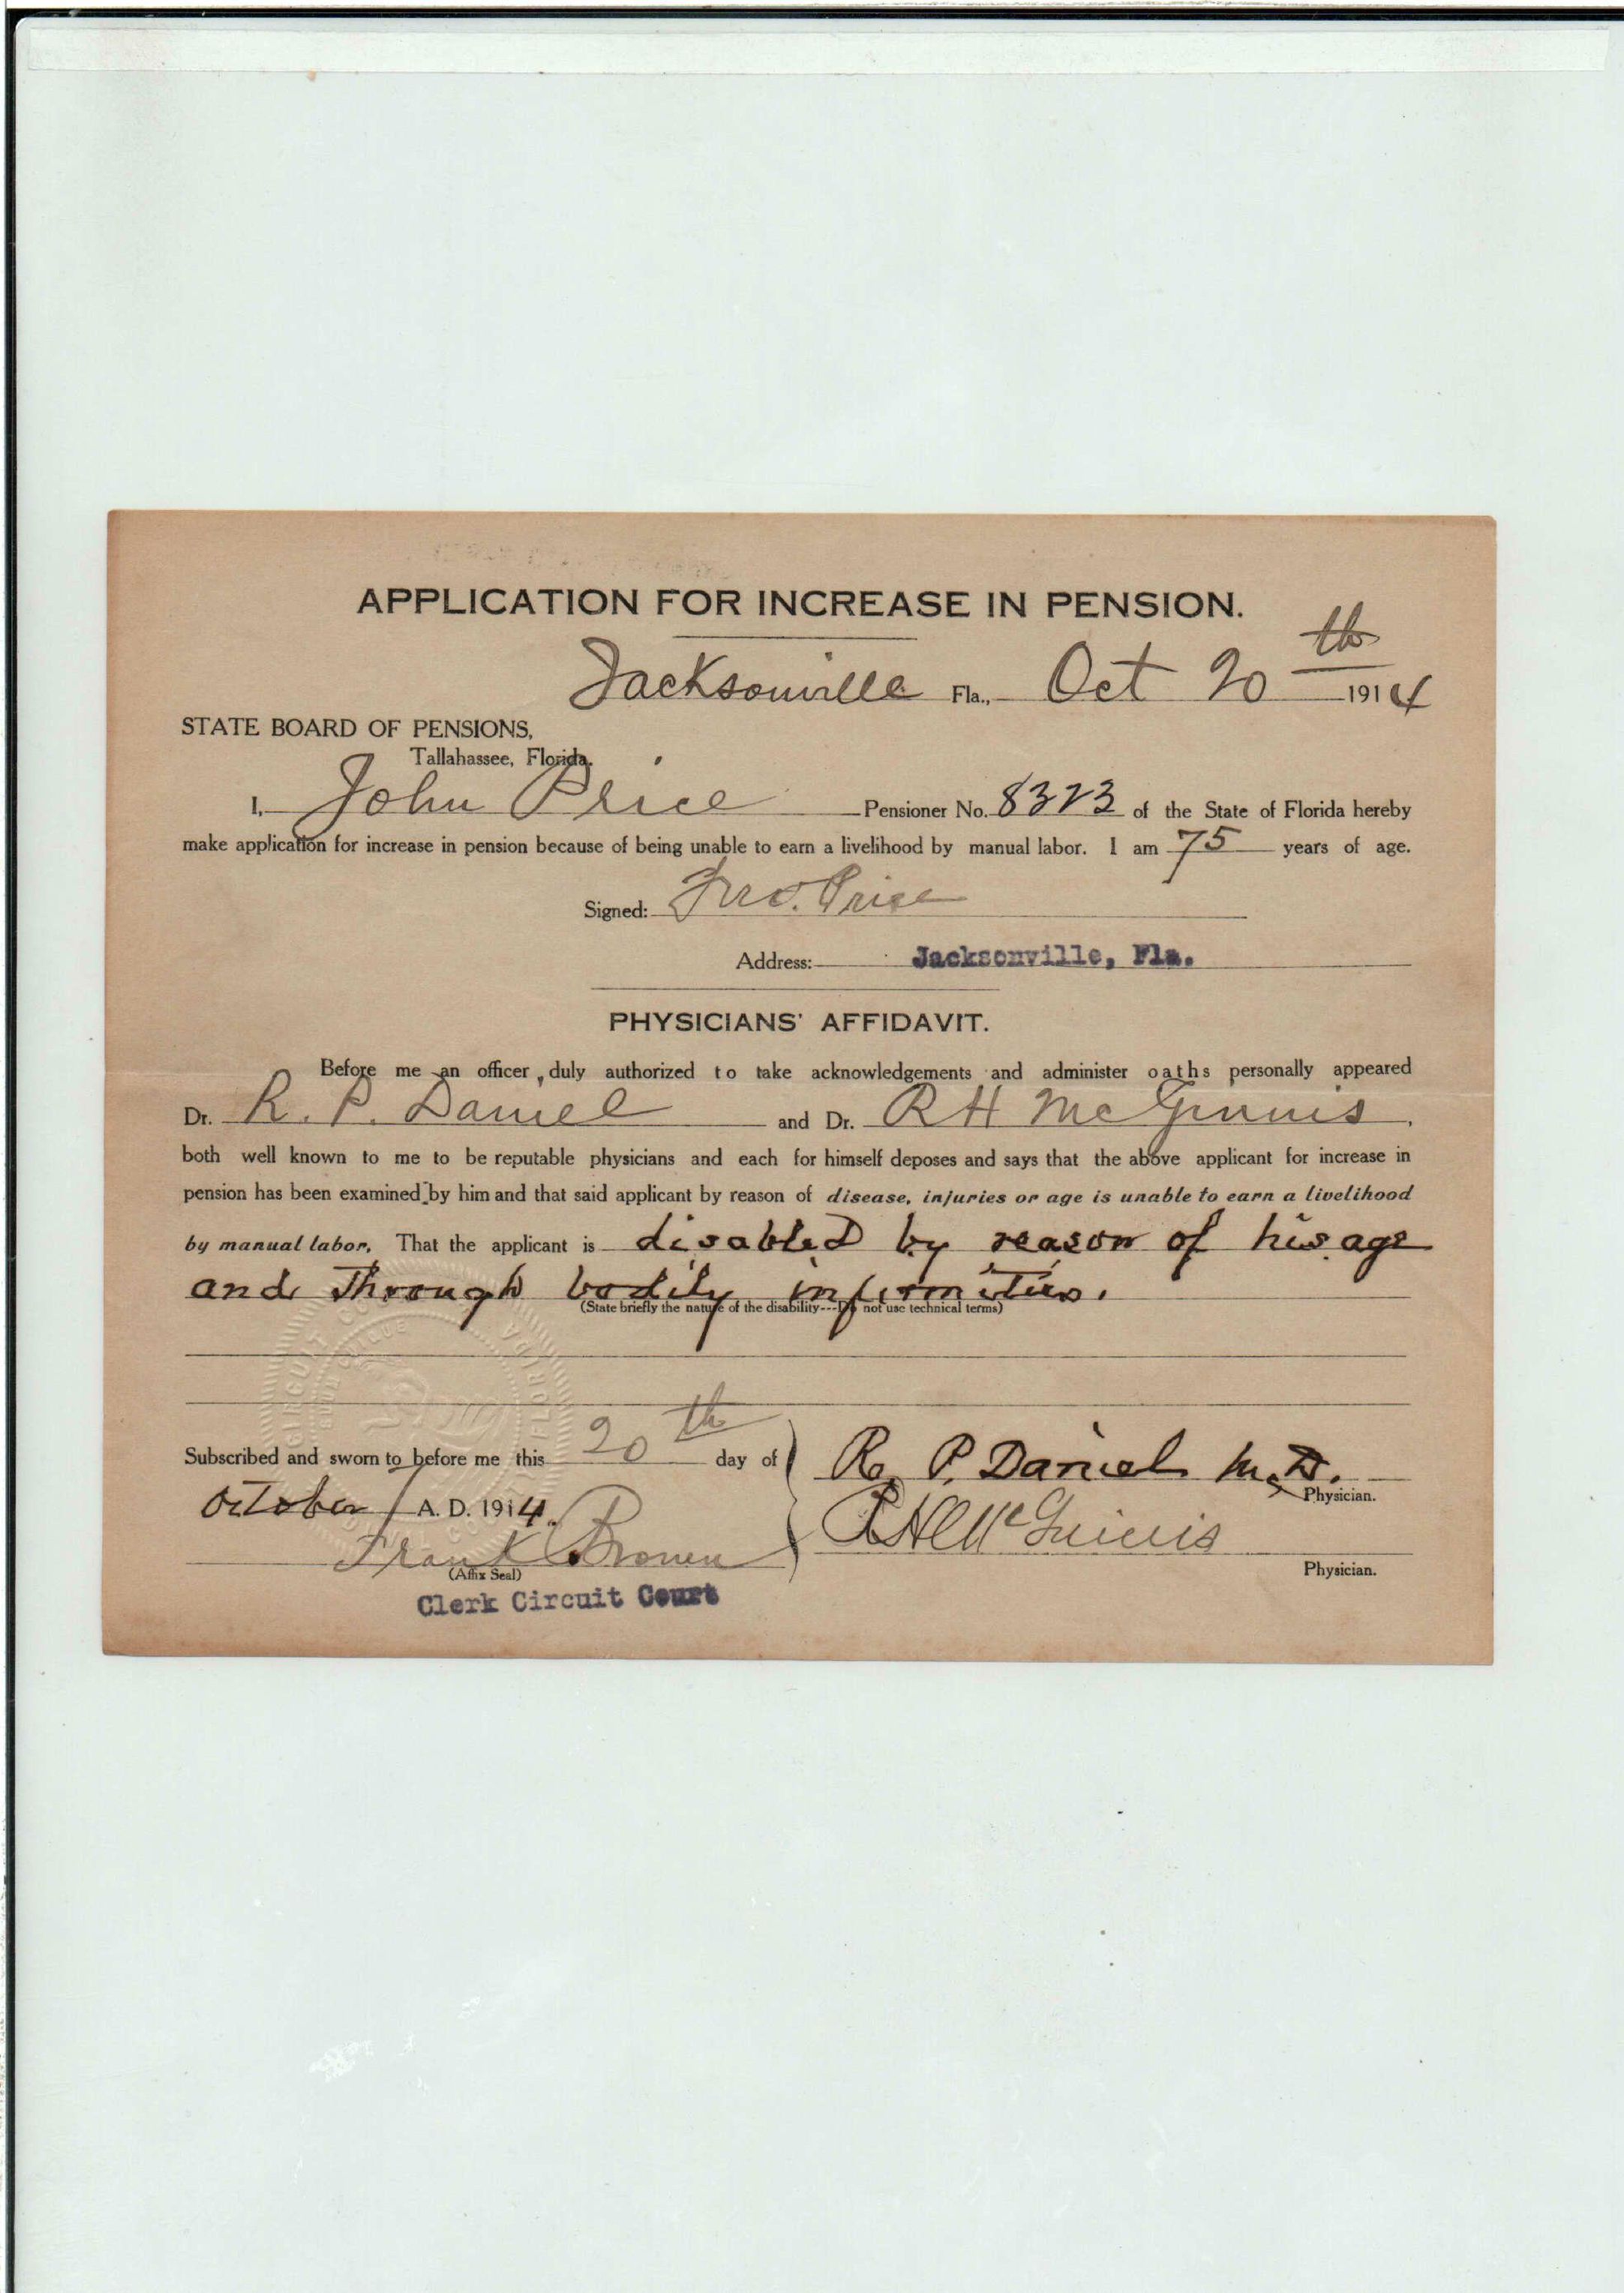 APPLICATION FOR INCREASE IN PENSION.
Jacksonville Fla., Oct 20th 1914
STATE BOARD OF PENSIONS,
Tallahassee, Florida.
I, John Price Pensioner No. 8323 of the State of Florida hereby
make application for increase in pension because of being unable to earn a livelihood by manual labor. I am 75 years of age.
Signed: Jno. Price
Address: Jacksonville, Fla.
PHYSICIANS' AFFIDAVIT.
Before me an officer, duly authorized to take acknowledgements and administer oaths personally appeared
Dr. R. P. Daniel and Dr. R H McGinnis,
both well known to me to be reputable physicians and each for himself deposes and says that the above applicant for increase in
pension has been examined by him and that said applicant by reason of disease, injuries or age is unable to earn a livelihood
by manual labor. That the applicant is disabled by reason of his age
and through bodily infirmities.
(State briefly the nature of the disability---Do not use technical terms)
Subscribed and sworn to before me this 20th day of
R. P. Daniel M.D.
Physician.
October A. D. 1914.
R H McGinnis
Physician.
Frank Brown
(Affix Seal)
Clerk Circuit Court